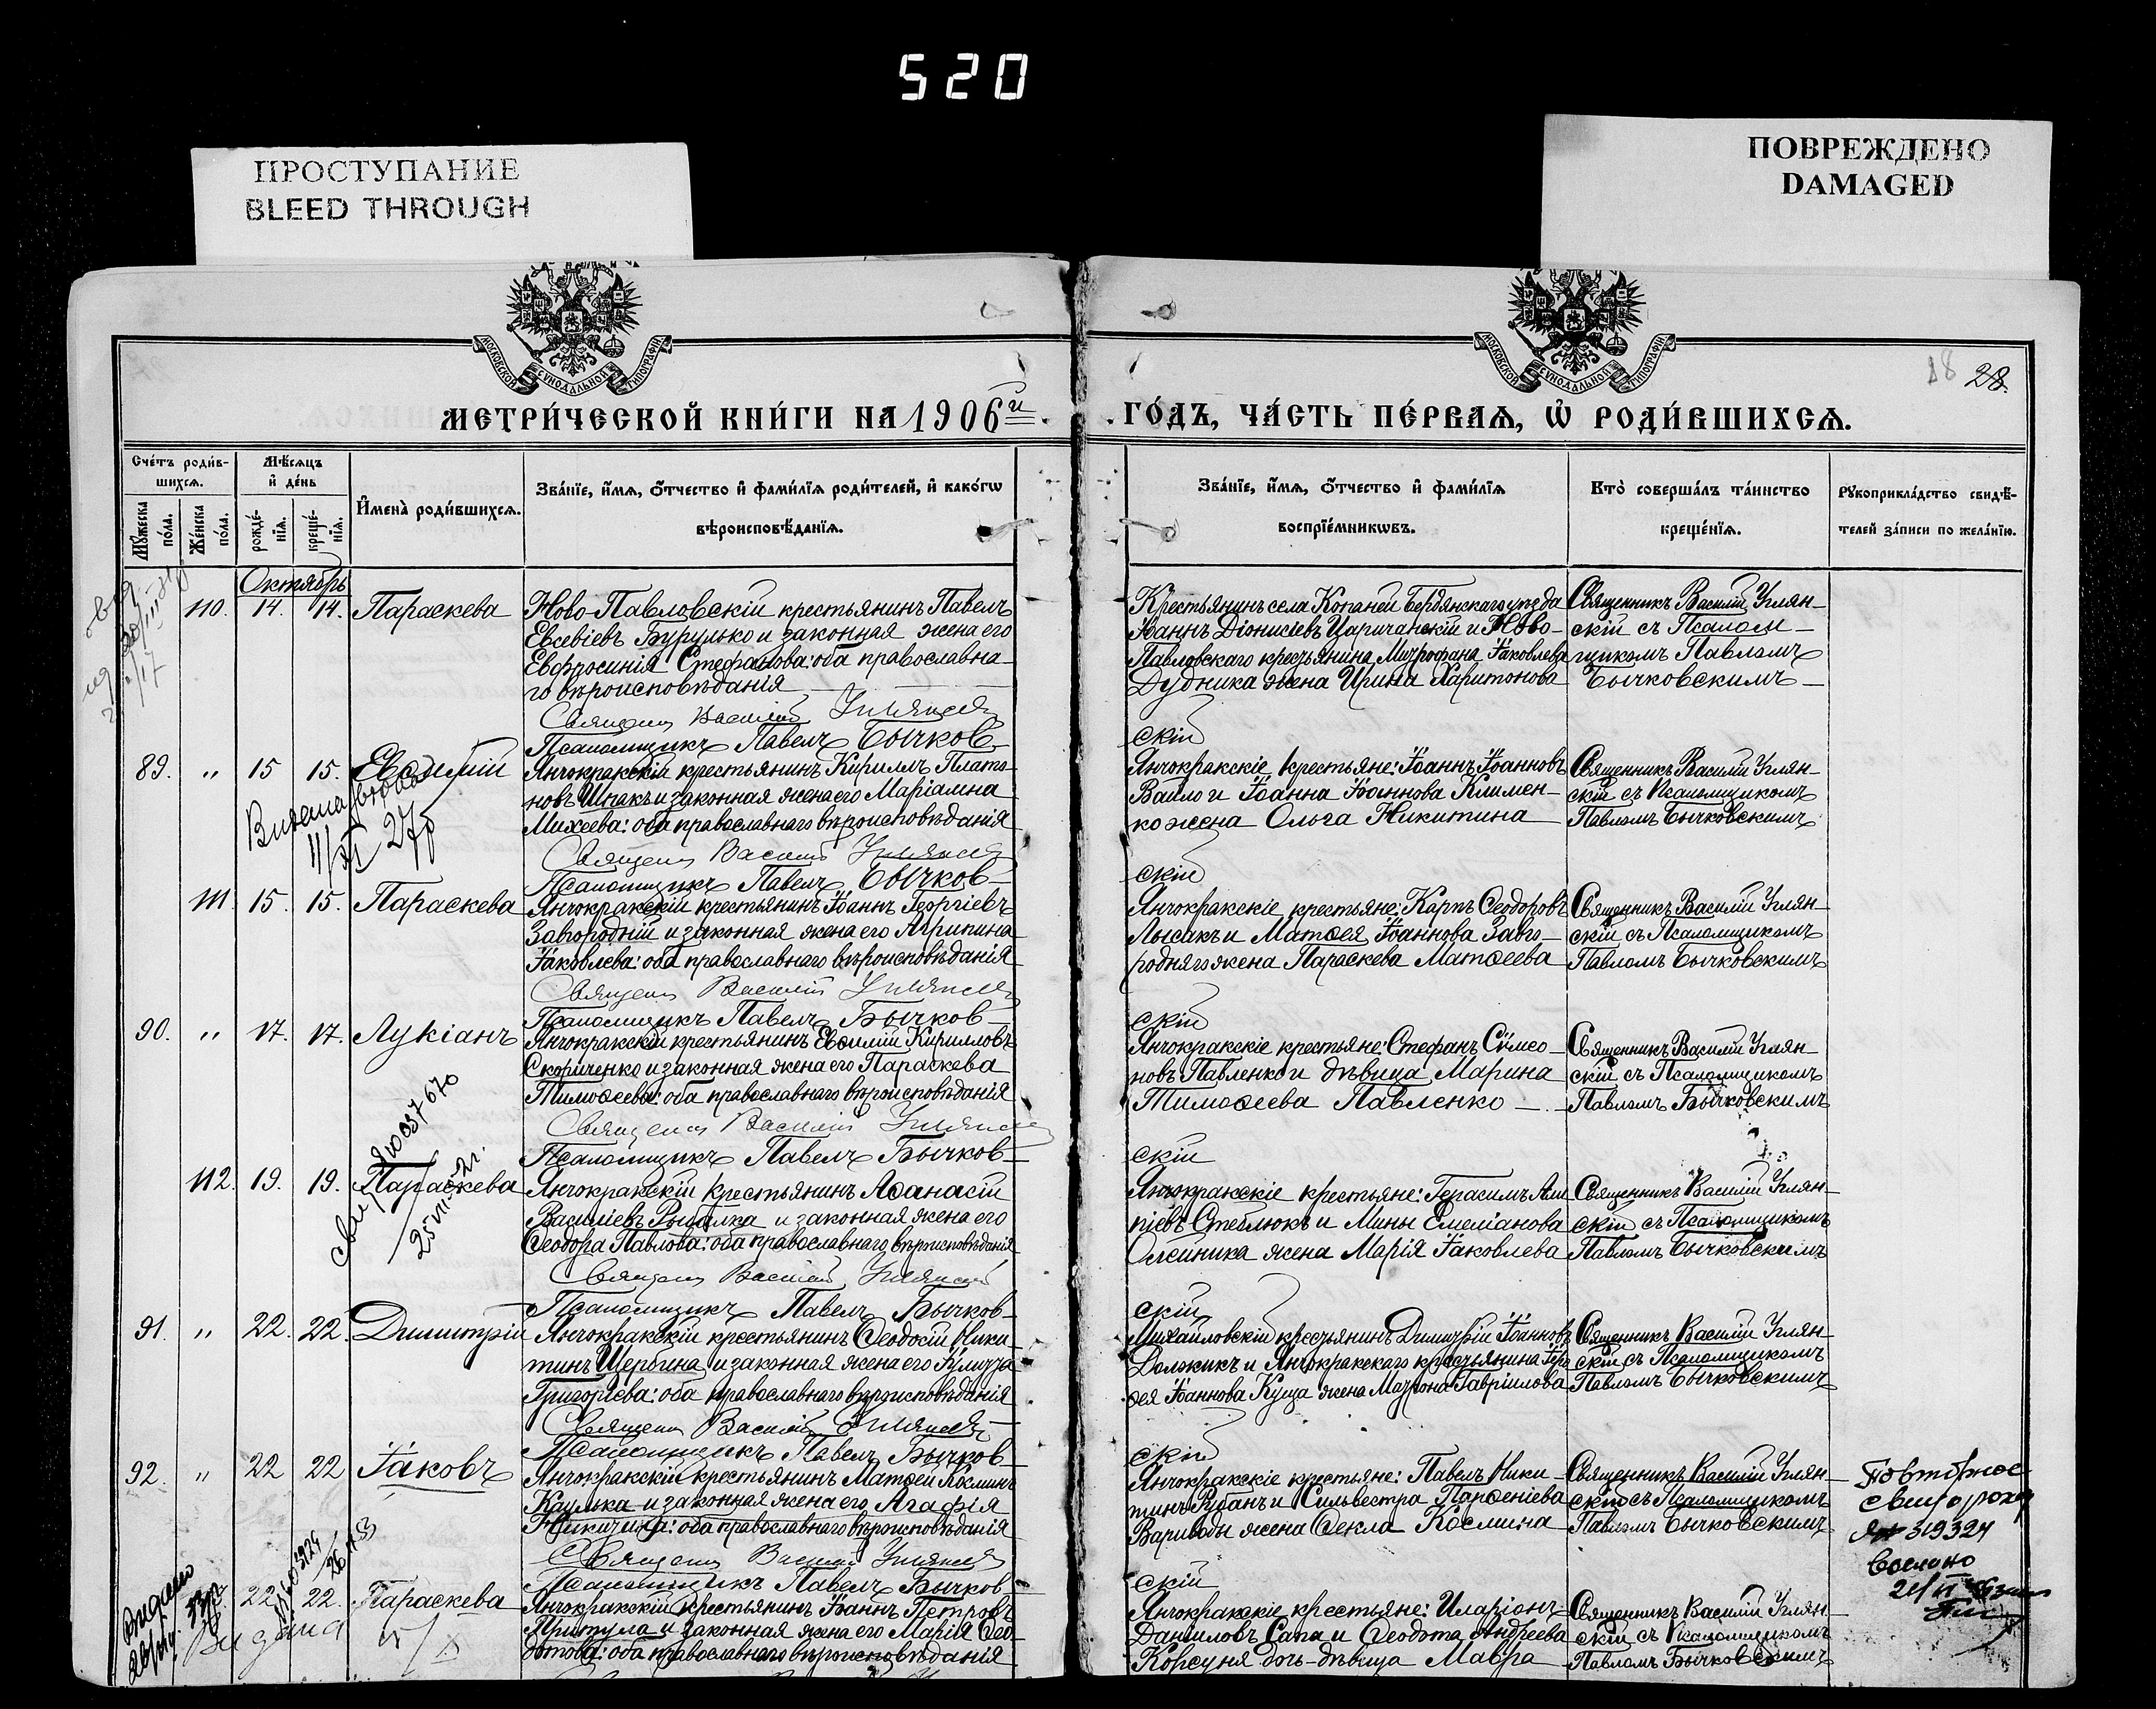 520
ПРОСТУПАНИЕ
BLEED THROUGH
ПОВРЕЖДЕНО
DAMAGED
МОСКОВСКОЙ СѴНОДАЛЬНОЙ ТИПОГРАФІИ
МОСКОВСКОЙ СѴНОДАЛЬНОЙ ТИПОГРАФІИ
28.
МЕТРИ́ЧЕСКОЙ КНИ́ГИ НА 1906й
ГО́ДЪ, ЧА́СТЬ ПЕ́РВАѦ, Ѡ҆ РОДИ́ВШИХСѦ.
Счéтъ роди́в-
шихсѧ.
Мꙋ́жеска по́ла.
Же́нска по́ла.
Мѣ́сѧцъ
и҆ де́нь
рожде́-нїѧ.
креще́-нїѧ.
И҆мена̀ роди́вшихсѧ.
Зва́нїе, и҆́мѧ, ѻ҆́тчество и҆ фами́лїѧ роди́телей, и҆ како́гѡ
вѣроисповѣ́данїѧ.
Зва́нїе, и҆́мѧ, ѻ҆́тчество и҆ фами́лїѧ
воспрїе́мникѡвъ.
Кто̀ соверша́лъ та́инство
креще́нїѧ.
Рꙋкоприкла́дство свидѣ́-
телей за́писи по жела́нїю.
Октябрь
110. 14. 14. Параскева
Ново-Павловскій крестьянинъ Павелъ
Евсевіевъ Бурулько и законная жена его
Евфросинія Стефанова: оба православна-
го вѣроисповѣданія
Священ. Василій Углянскій
Псаломщикъ Павелъ Бычков-
Крестьянинъ села Копаней Бердянскаго уѣзда
Іоаннъ Діонисіевъ Царичанскій и Ново-
Павловскаго крестьянина Митрофана Іаковлева
Дудника жена Ирина Харитонова
скій
Священникъ Василій Углян-
скій съ Псалом-
щикомъ Павломъ
Бычковскимъ
89. " 15 15. Евѳимій
11/XI 27р
Янчокракскій крестьянинъ Кириллъ Плато-
новъ Шпакъ и законная жена его Маріамна
Михеева: оба православнаго вѣроисповѣданія
Священ. Василій Углянскій
Псаломщикъ Павелъ Бычков-
Янчокракскіе крестьяне: Іоаннъ Іоанновъ
Вайло и Іоанна Іоаннова Климен-
ко жена Ольга Никитина
скій
Священникъ Василій Углян-
скій съ Псаломщикомъ
Павломъ Бычковскимъ
111. 15. 15. Параскева
Янчокракскій крестьянинъ Іоаннъ Георгіевъ
Завгородній и законная жена его Агрипина
Іаковлева: оба православнаго вѣроисповѣданія
Священ. Василій Углянскій
Псаломщикъ Павелъ Бычков-
Янчокракскіе крестьяне: Карпъ Ѳеодоровъ
Лысакъ и Матѳея Іоаннова Завго-
родняго жена Параскева Матѳеева
скій
Священникъ Василій Углян-
скій съ Псаломщикомъ
Павломъ Бычковскимъ
90. " 17. 17. Лукіанъ
Янчокракскій крестьянинъ Евѳимій Кирилловъ
Скориченко и законная жена его Параскева
Тимоѳеева: оба православнаго вѣроисповѣданія
Священ. Василій Углянскій
Псаломщикъ Павелъ Бычков-
Янчокракскіе крестьяне: Стефанъ Сѵмео-
новъ Павленко и дѣвица Марина
Тимоѳеева Павленко
скій
Священникъ Василій Углян-
скій съ Псаломщикомъ
Павломъ Бычковскимъ
112. 19. 19. Параскева
Янчокракскій крестьянинъ Аѳанасій
Василіевъ Рыбалка и законная жена его
Ѳеодора Павлова: оба православнаго вѣроисповѣданія
Священ. Василій Углянскій
Псаломщикъ Павелъ Бычков-
Янчокракскіе крестьяне: Герасимъ Али
піевъ Стеблюкъ и Мины Емеліанова
Олейника жена Марія Іаковлева
скій
Священникъ Василій Углян-
скій съ Псаломщикомъ
Павломъ Бычковскимъ
91. " 22. 22. Димитрій
Янчокракскій крестьянинъ Ѳеодосій Ники-
тинъ Щербина и законная жена его Іулитта
Григоріева: оба православнаго вѣроисповѣданія
Священ. Василій Углянскій
Псаломщикъ Павелъ Бычков-
Михайловскій крестьянинъ Димитрій Іоанновъ
Долокикъ и Янчокракскаго крестьянина
Іоаннова Куща жена Матрона Гавріилова
скій
Священникъ Василій Углян-
скій съ Псаломщикомъ
Павломъ Бычковскимъ
92. " 22 22 Іаковъ
Янчокракскій крестьянинъ Матѳей Косминъ
Каулька и законная жена его Агафія
Никитина: оба православнаго вѣроисповѣданія
Священ. Василій Углянскій
Псаломщикъ Павелъ Бычков-
Янчокракскіе крестьяне: Павелъ Ники-
тинъ Рубанъ и Сильвестра Парѳеніева
Вариводы жена Ѳекла Космина
скій
Священникъ Василій Углян-
скій съ Псаломщикомъ
Павломъ Бычковскимъ
Повторное
319324
22. 22. Параскева
Выдано
Янчокракскій крестьянинъ Іоаннъ Петровъ
Притула и законная жена его Марія Ѳео-
дотова: оба православнаго вѣроисповѣданія
Янчокракскіе крестьяне: Иларіонъ
Даніиловъ Сапа и Ѳеодота Андреева
Корсуня дочь-дѣвица Мавра
Священникъ Василій Углян-
скій съ Псаломщикомъ
Павломъ Бычковскимъ